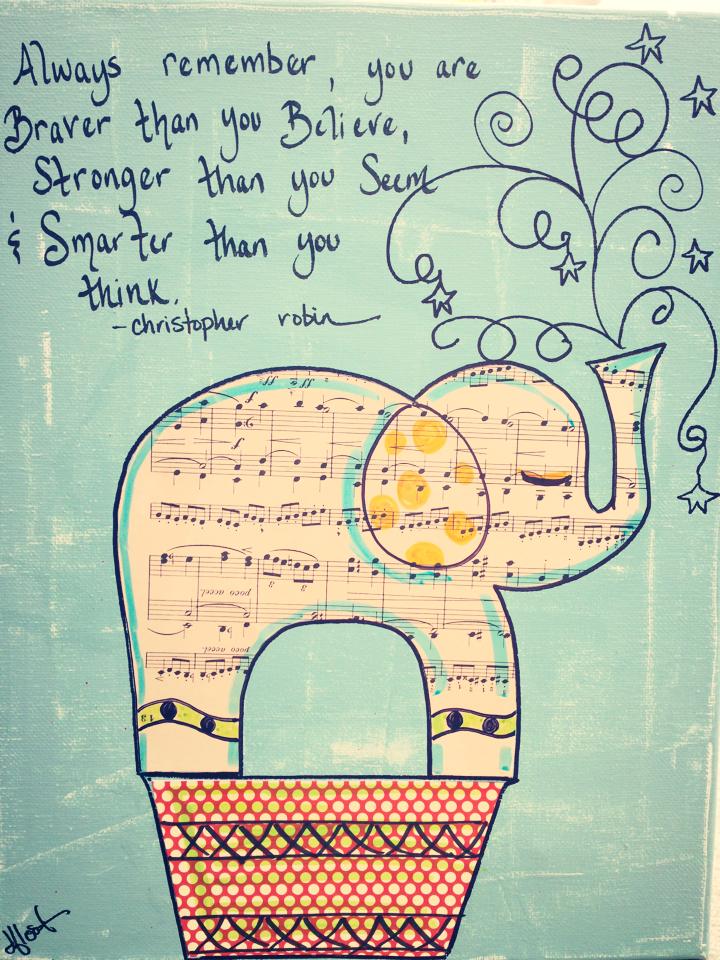 Always remember, you are
Braver than you Believe,
Stronger than you Seem
& Smarter than you
think.
-christopher robin
ff
ff
f
poco accel.
poco accel.
13